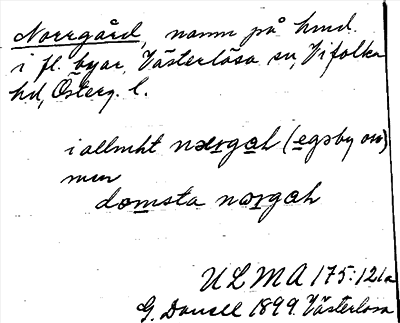 Norrgård, namn på hmd.
i fl. byar, Västerlösa sn, Vifolka
hd, Österg. l.
i allmht nærgah (egsby on)
men
domsta norgah
ULMA 175:121a
G. Danell 1899. Västerlösa